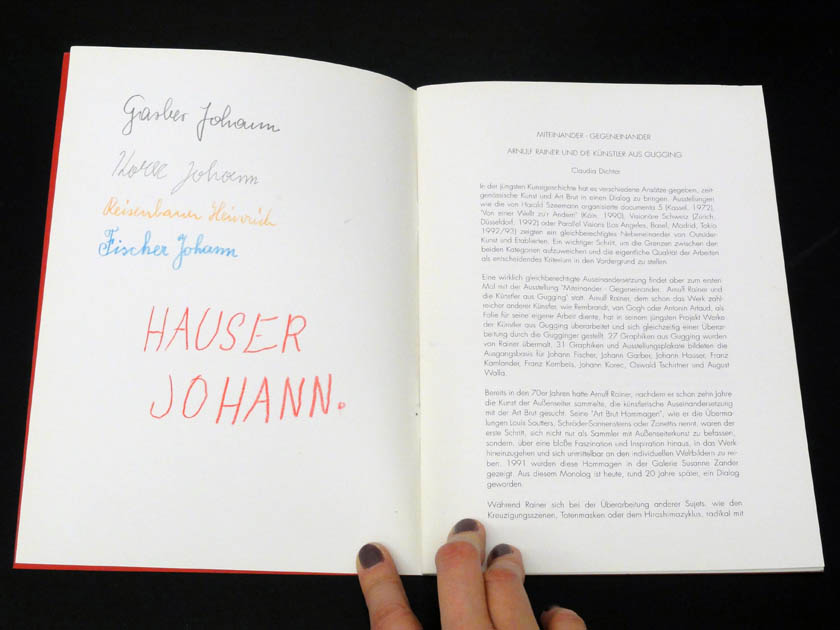 Garber Johann
Korec Johann
Reisenbauer Heinrich
Fischer Johann
HAUSER
JOHANN.
MITEINANDER - GEGENEINANDER
ARNULF RAINER UND DIE KÜNSTLER AUS GUGGING
Claudia Dichter
In der jüngsten Kunstgeschichte hat es verschiedene Ansätze gegeben, zeit-
genössische Kunst und Art Brut in einen Dialog zu bringen. Ausstellungen
wie die von Harald Szeemann organisierte documenta 5 (Kassel, 1972),
"Von einer Wellt zu'r Andern" (Köln, 1990), Visionäre Schweiz (Zürich,
Düsseldorf, 1992) oder Parallel Visions (Los Angeles, Basel, Madrid, Tokio
1992/93) zeigten ein gleichberechtigtes Nebeneinander von Outsider-
Kunst und Etablierten. Ein wichtiger Schritt, um die Grenzen zwischen den
beiden Kategorien aufzuweichen und die eigentliche Qualität der Arbeiten
als entscheidendes Kriterium in den Vordergrund zu stellen.
Eine wirklich gleichberechtigte Auseinandersetzung findet aber zum ersten
Mal mit der Ausstellung "Miteinander - Gegeneinander. Arnulf Rainer und
die Künstler aus Gugging" statt. Arnulf Rainer, dem schon das Werk zahl-
reicher anderer Künstler, wie Rembrandt, van Gogh oder Antonin Artaud, als
Folie für seine eigene Arbeit diente, hat in seinem jüngsten Projekt Werke
der Künstler aus Gugging überarbeitet und sich gleichzeitig einer Überar-
beitung durch die Gugginger gestellt. 27 Graphiken aus Gugging wurden
von Rainer übermalt, 31 Graphiken und Ausstellungsplakate bildeten die
Ausgangsbasis für Johann Fischer, Johann Garber, Johann Hauser, Franz
Kamlander, Franz Kernbeis, Johann Korec, Oswald Tschirtner und August
Walla.
Bereits in den 70er Jahren hatte Arnulf Rainer, nachdem er schon zehn Jahre
die Kunst der Außenseiter sammelte, die künstlerische Auseinandersetzung
mit der Art Brut gesucht. Seine "Art Brut Hommagen", wie er die Überma-
lungen Louis Soutters, Schröder-Sonnensterns oder Zanettis nennt, waren der
erste Schritt, sich nicht nur als Sammler mit Außenseiterkunst zu befassen,
sondern, über eine bloße Faszination und Inspiration hinaus, in das Werk
hineinzugehen und sich unmittelbar an den individuellen Weltbildern zu rei-
ben. 1991 wurden diese Hommagen in der Galerie Susanne Zander
gezeigt. Aus diesem Monolog ist heute, rund 20 Jahre später, ein Dialog
geworden.
Während Rainer sich bei der Überarbeitung anderer Sujets, wie den
Kreuzigungsszenen, Totenmasken oder dem Hiroshimazyklus, radikal mit